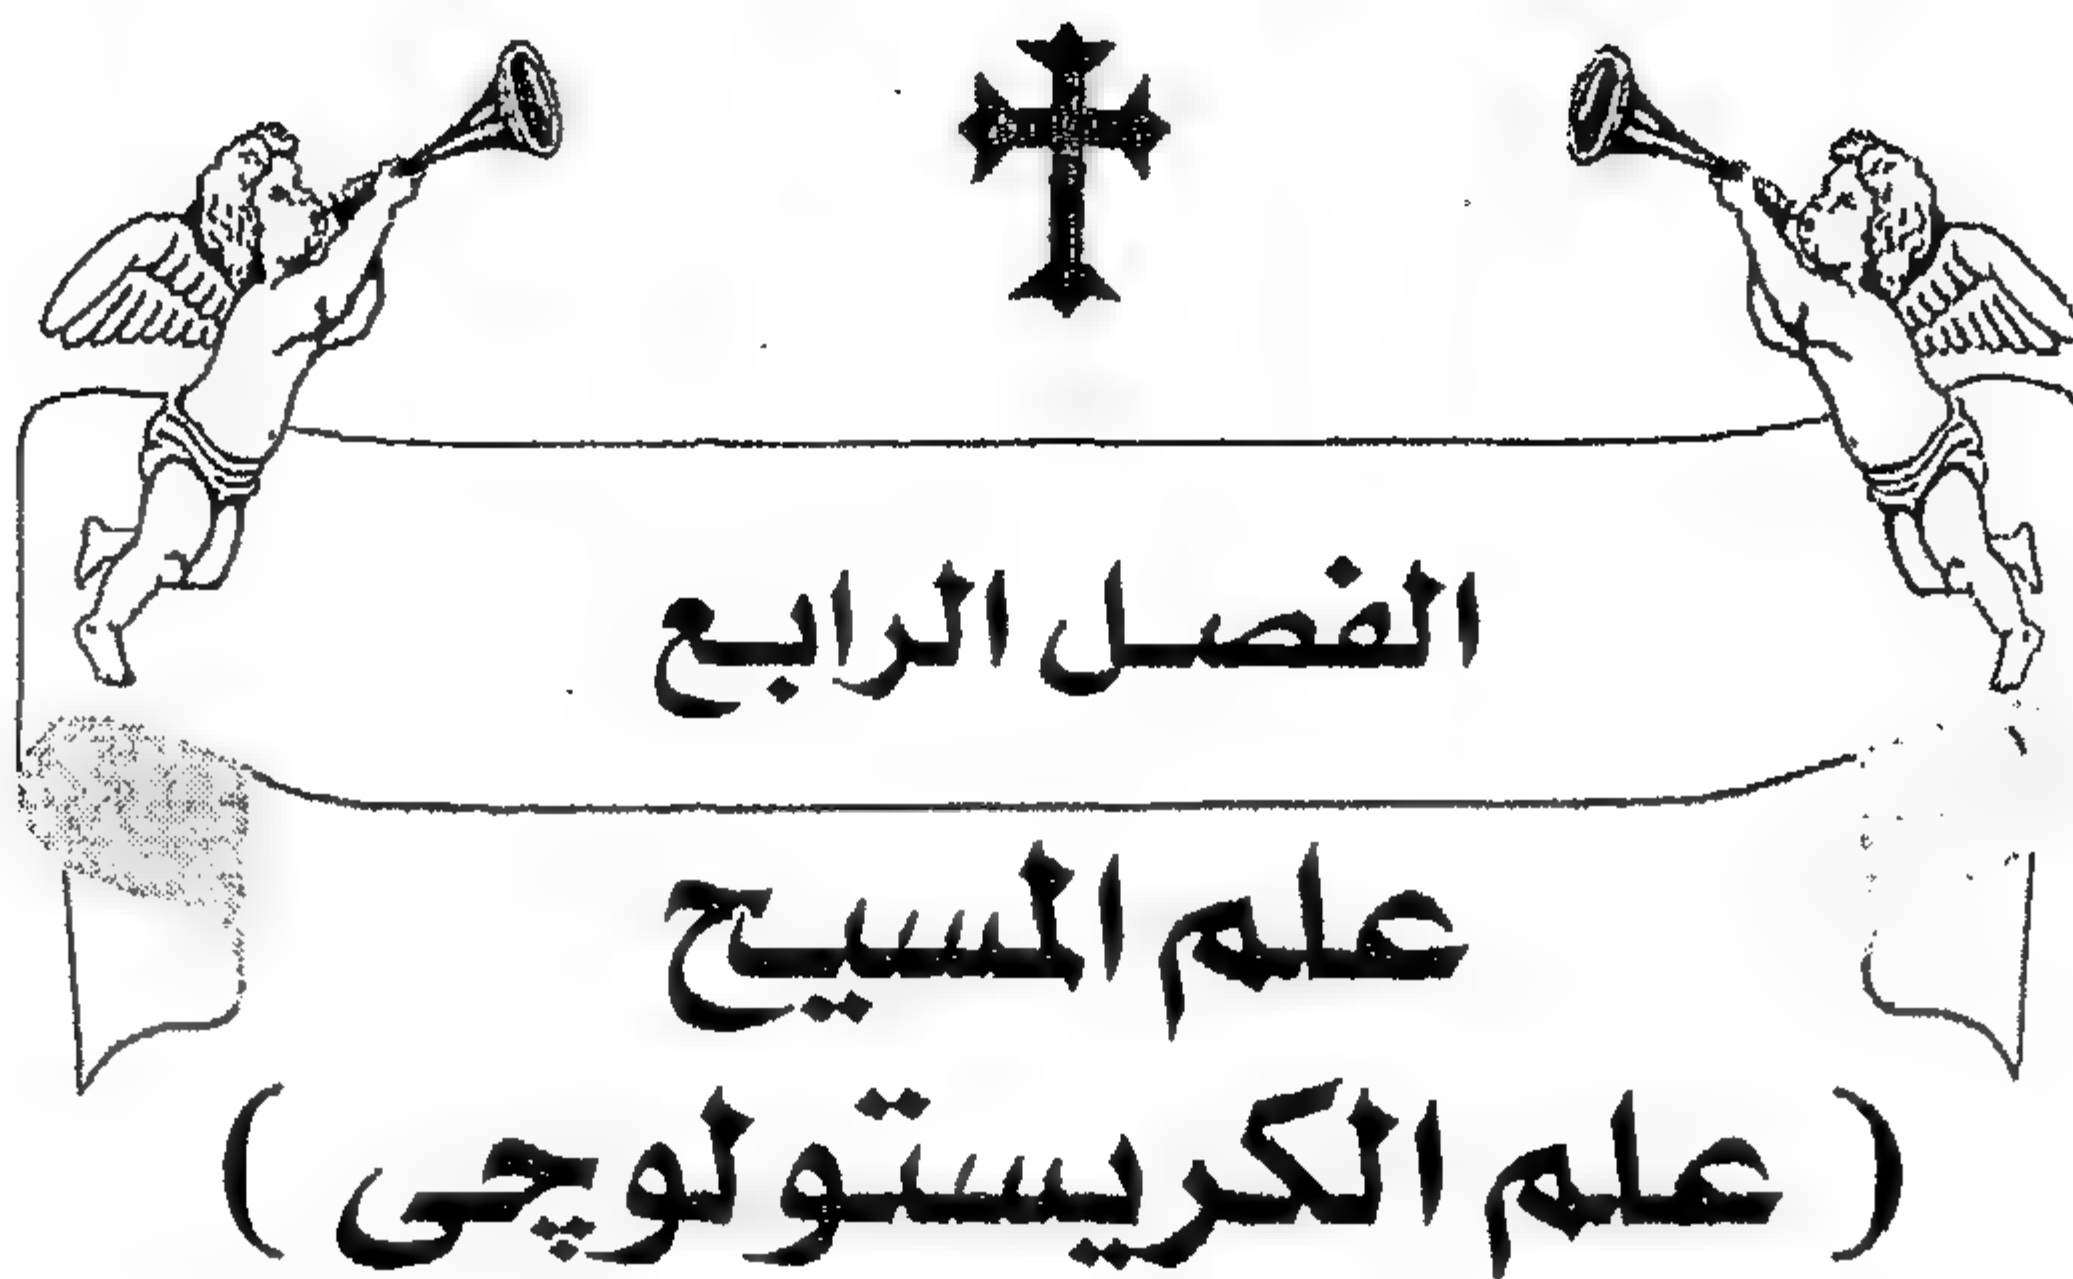 الفصل الرابع
علم المسيح
( علم الكريستولوچى )